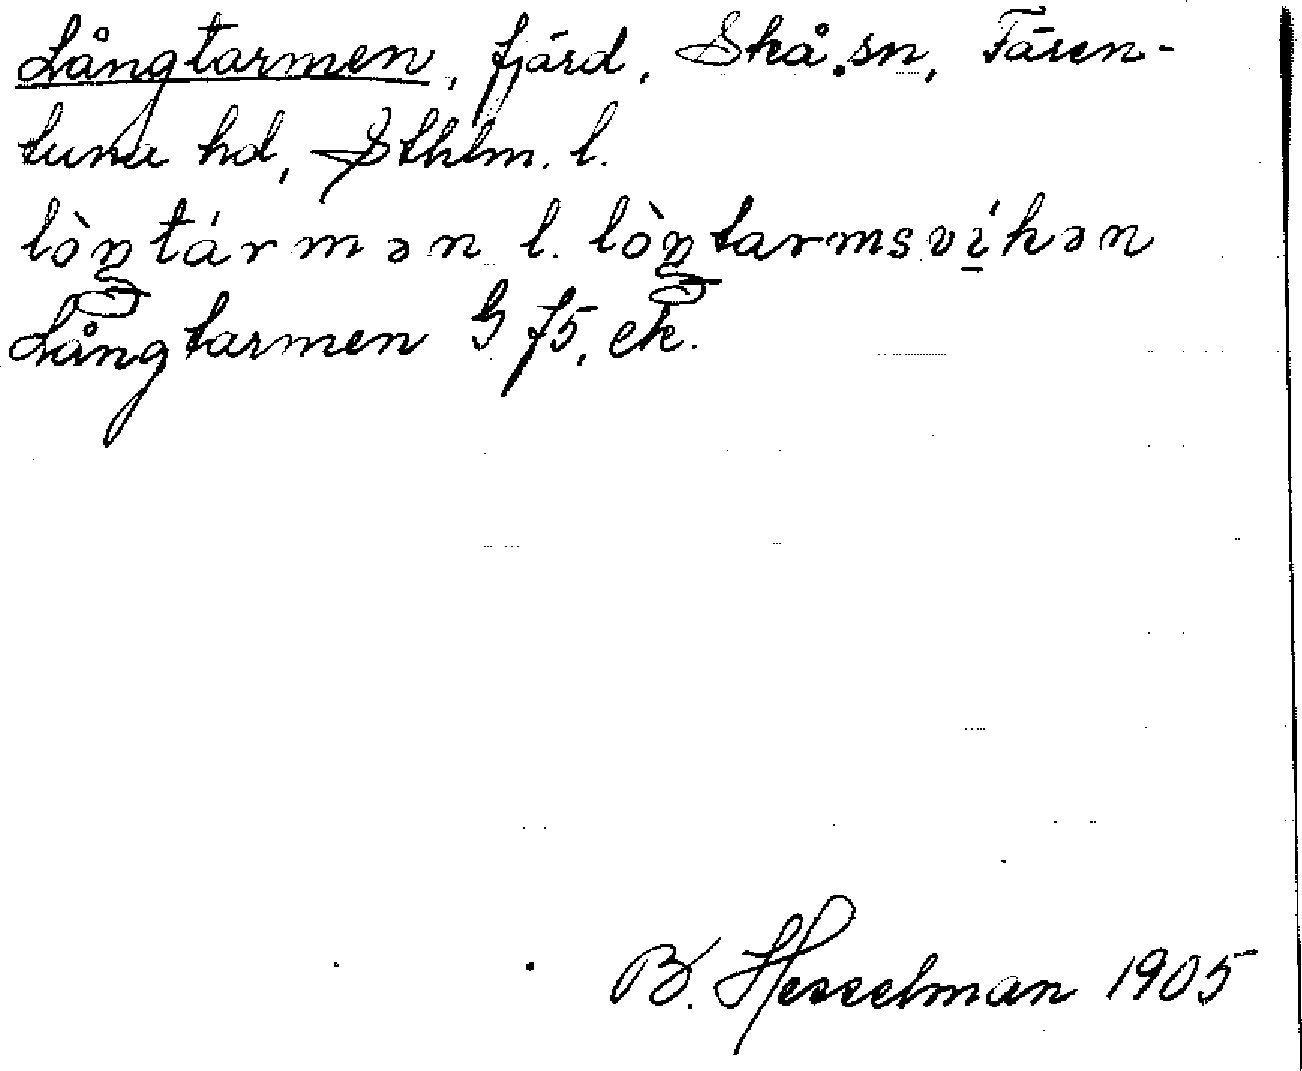 Långtarmen, fjärd, Skå sn, Fären-
tuna hd, Sthlm. l.
lòŋtármən l. lòŋtarmsvíkən
Långtarmen G f5, ek.
B. Hesselman 1905